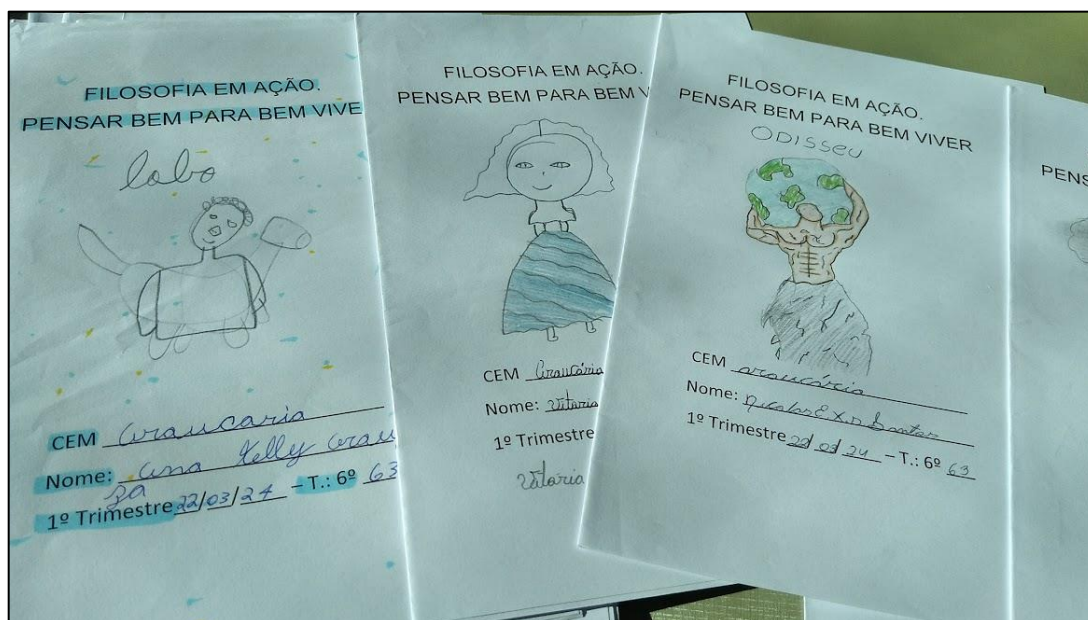 FILOSOFIA EM AÇÃO.
PENSAR BEM PARA BEM VIVE
lobo
CEM Araucaria
Nome: Ana Kelly
1º Trimestre 22/03/24 – T.: 6º 63
FILOSOFIA EM AÇÃO.
PENSAR BEM PARA BEM V
CEM Araucária
Nome: Vitaria
1º Trimestre
Vitaria
FILOSOFIA EM AÇÃO.
PENSAR BEM PARA BEM VIVER
ODISSEU
CEM araucárcia
Nome:
1º Trimestre 22/03/24 – T.: 6º 63
PENS